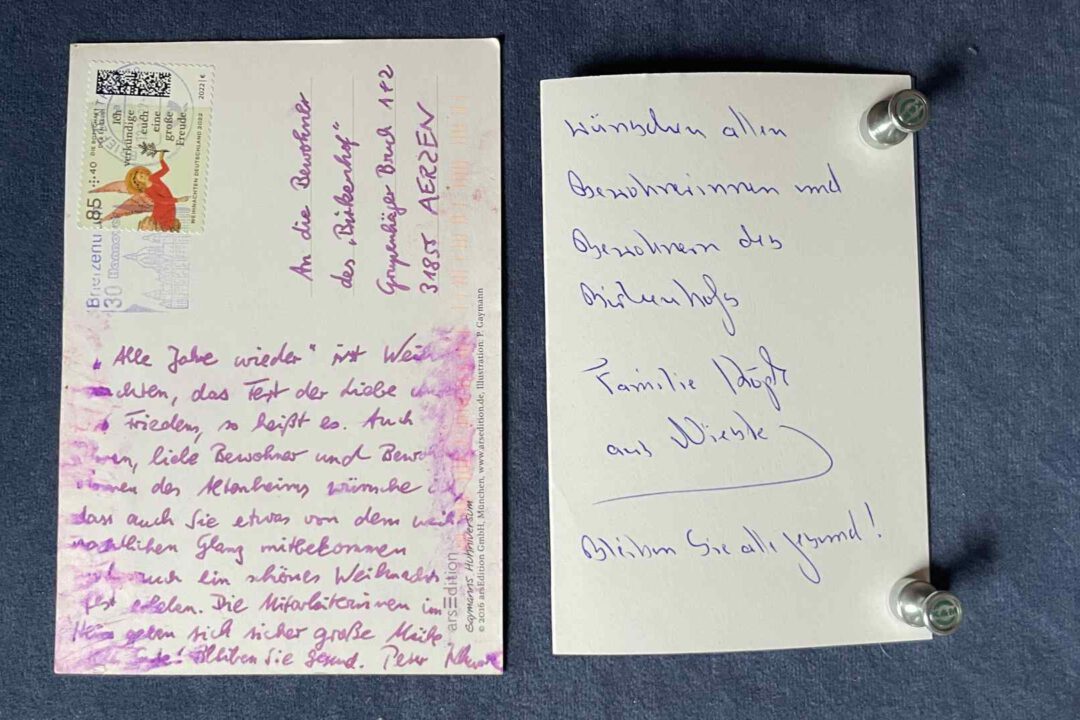 2022 | €
Ich
verkündige
euch
eine
große
Freude.
DIE BOTSCHAFT
DER ENGEL
85 + 40
WEIHNACHTEN DEUTSCHLAND 2022
Briefzentrum
30 Hannover
An die Bewohner
des „Birkenhof“
Grupenhäger Bruch 1+2
31855 AERZEN
„Alle Jahre wieder“ ist Weih
achten, das Fest der Liebe
Friedens, so heißt es. Auch
liebe Bewohner und Bewoh
des Altenheims wünsche
dass auch Sie etwas von dem weih
nachtlichen Glanz mitbekommen
auch ein schönes Weihnachts
fest erleben. Die Mitarbeiterinnen im
Heim geben sich sicher große Mühe.
Gute! Bleiben Sie gesund. Peter
arsEdition
Gaymanns Huhniversum
© 2016 arsEdition GmbH, München, www.arsedition.de, Illustration: P. Gaymann
wünschen allen
Bewohnerinnen und
Bewohnern des
Birkenhofs
Familie
aus
Bleiben Sie alle gesund!